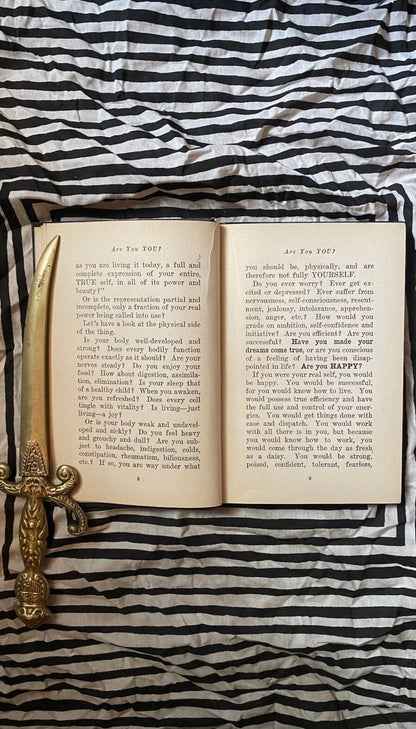 Are You YOU?
as you are living it today, a full and
complete expression of your entire,
TRUE self, in all of its power and
beauty?"
Or is the representation partial and
incomplete, only a fraction of your real
power being called into use?
Let's have a look at the physical side
of the thing.
Is your body well-developed and
strong? Does every bodily function
operate exactly as it should? Are your
nerves steady? Do you enjoy your
food? How about digestion, assimila-
tion, elimination? Is your sleep that
of a healthy child? When you awaken,
are you refreshed? Does every cell
tingle with vitality? Is living—just
living—a joy?
Or is your body weak and undevel-
oped and sickly? Do you feel heavy
and grouchy and dull? Are you sub-
ject to headache, indigestion, colds,
constipation, rheumatism, biliousness,
etc.? If so, you are way under what
8
Are You YOU?
you should be, physically, and are
therefore not fully YOURSELF.
Do you ever worry? Ever get ex-
cited or depressed? Ever suffer from
nervousness, self-consciousness, resent-
ment, jealousy, intolerance, apprehen-
sion, anger, etc.? How would you
grade on ambition, self-confidence and
initiative? Are you efficient? Are you
successful? Have you made your
dreams come true, or are you conscious
of a feeling of having been disap-
pointed in life? Are you HAPPY?
If you were your real self, you would
be happy. You would be successful,
for you would know how to live. You
would possess true efficiency and have
the full use and control of your ener-
gies. You would get things done with
ease and dispatch. You would work
with all there is in you, but because
you would know how to work, you
would come through the day as fresh
as a daisy. You would be strong,
poised, confident, tolerant, fearless,
9